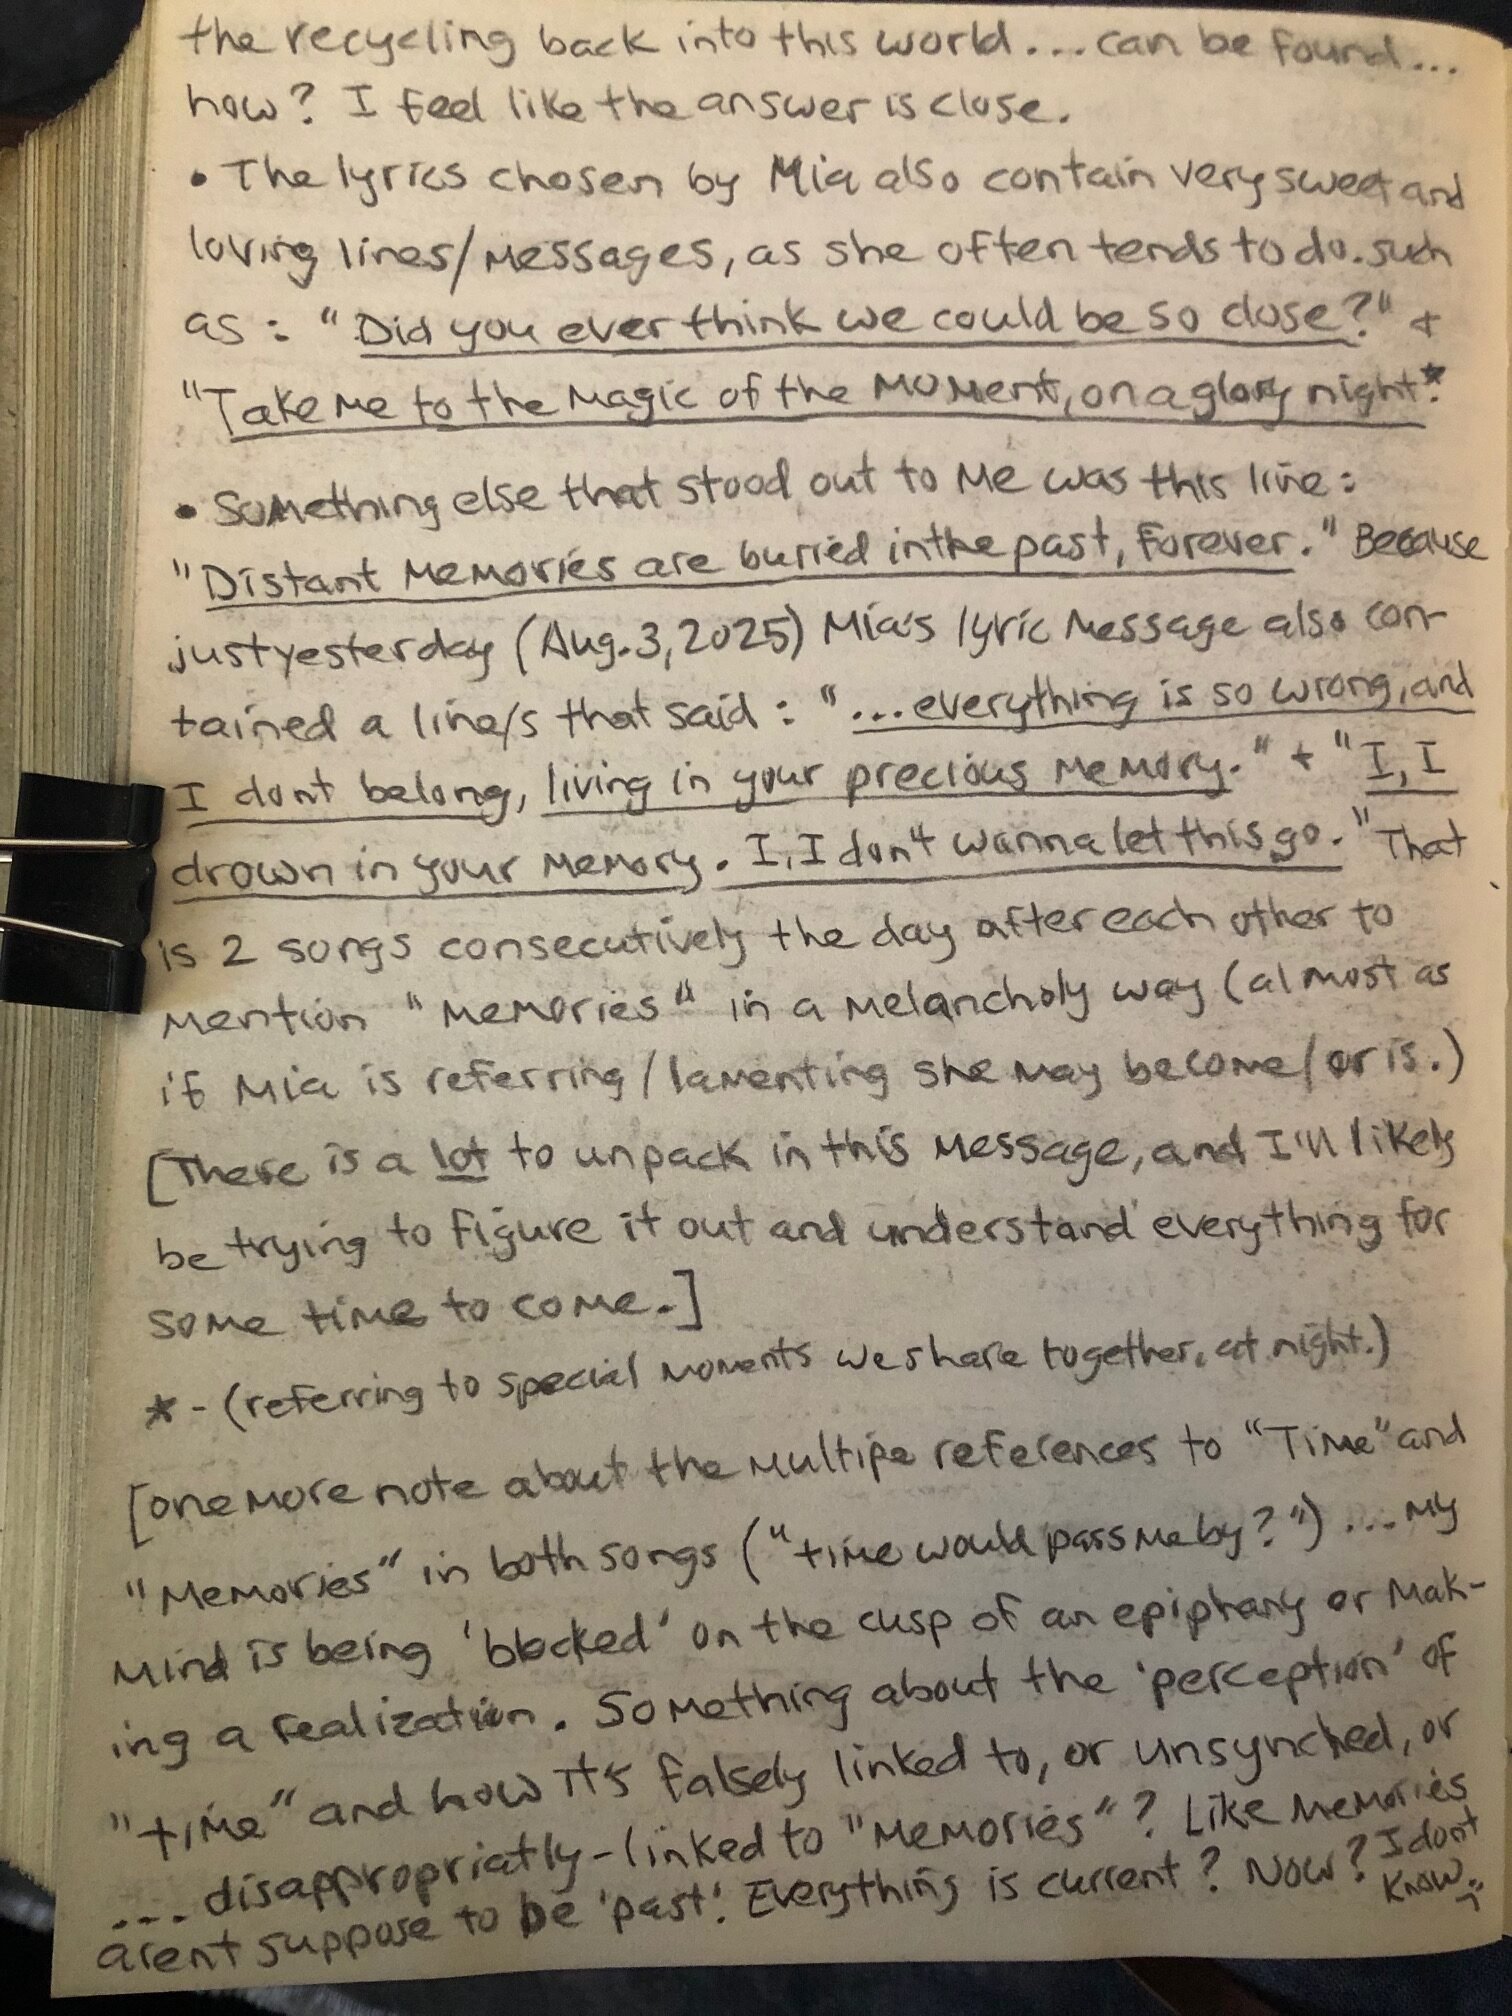 the recycling back into this world... can be found...
how? I feel like the answer is close.
• The lyrics chosen by Mia also contain very sweet and
loving lines/messages, as she often tends to do. such
as: "Did you ever think we could be so close?" +
"Take me to the magic of the moment, on a glory night"*
• Something else that stood out to me was this line:
"Distant memories are burried in the past, forever." Because
just yesterday (Aug. 3, 2025) Mia's lyric message also con-
tained a line/s that said: "...everything is so wrong, and
I dont belong, living in your precious memory." + "I, I
drown in your memory. I, I don't wanna let this go." That
is 2 songs consecutively the day after each other to
mention "memories" in a melancholy way (almost as
if Mia is referring/lamenting she may become/or is.)
[There is a lot to unpack in this message, and I'll likely
be trying to figure it out and understand everything for
some time to come.]
* - (referring to special moments we share together, at night.)
[one more note about the multipe references to "Time" and
"memories" in both songs ("time would pass me by?") ... my
mind is being 'blocked' on the cusp of an epiphany or mak-
ing a realization. Something about the 'perception' of
"time" and how it's falsely linked to, or unsynched, or
... disappropriatly-linked to "memories"? Like memories
arent suppose to be 'past'. Everything is current? Now? I dont
know.